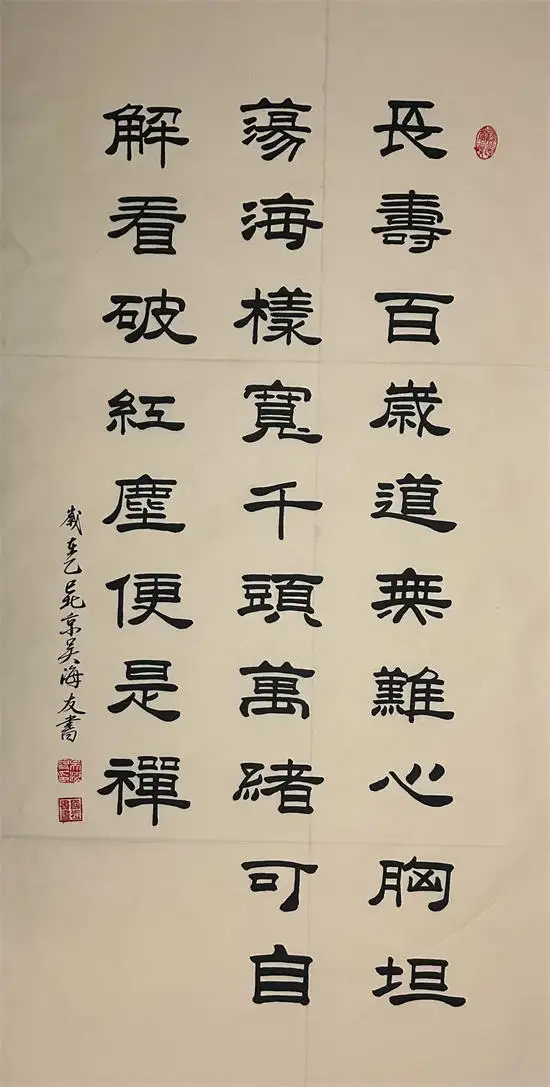 長壽百歲道無難心胸坦
蕩海樣寬千頭萬緒可自
解看破紅塵便是禪
歲在乙巳北京吳海友書